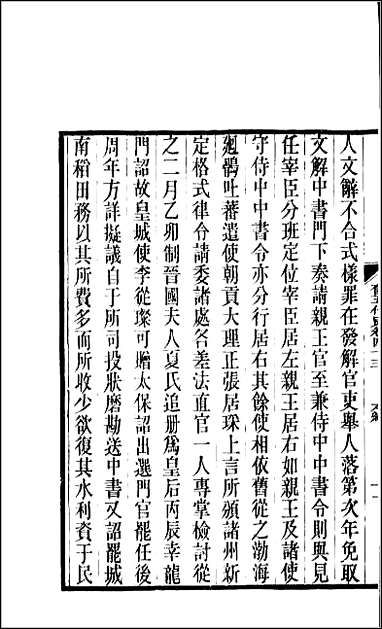 人文解不合式樣罪在發解官吏舉人落第次年免取
文解中書門下奏請親王官至兼侍中中書令則與見
任宰臣分班定位宰臣居左親王居右如親王及諸使
守侍中中書令亦分行居右其餘使相依舊從之渤海
迴鶻吐蕃遣使朝貢大理正張居琭上言所頒諸州新
定格式律令請委諸處各差法直官一人專掌檢討從
之二月乙卯制晉國夫人夏氏追册爲皇后丙辰幸龍
門詔故皇城使李從璨可贈太保詔出選門官罷任後
周年方許擬議自于所司投狀磨勘送中書又詔罷城
南稻田務以其所費多而所收少欲復其水利資于民